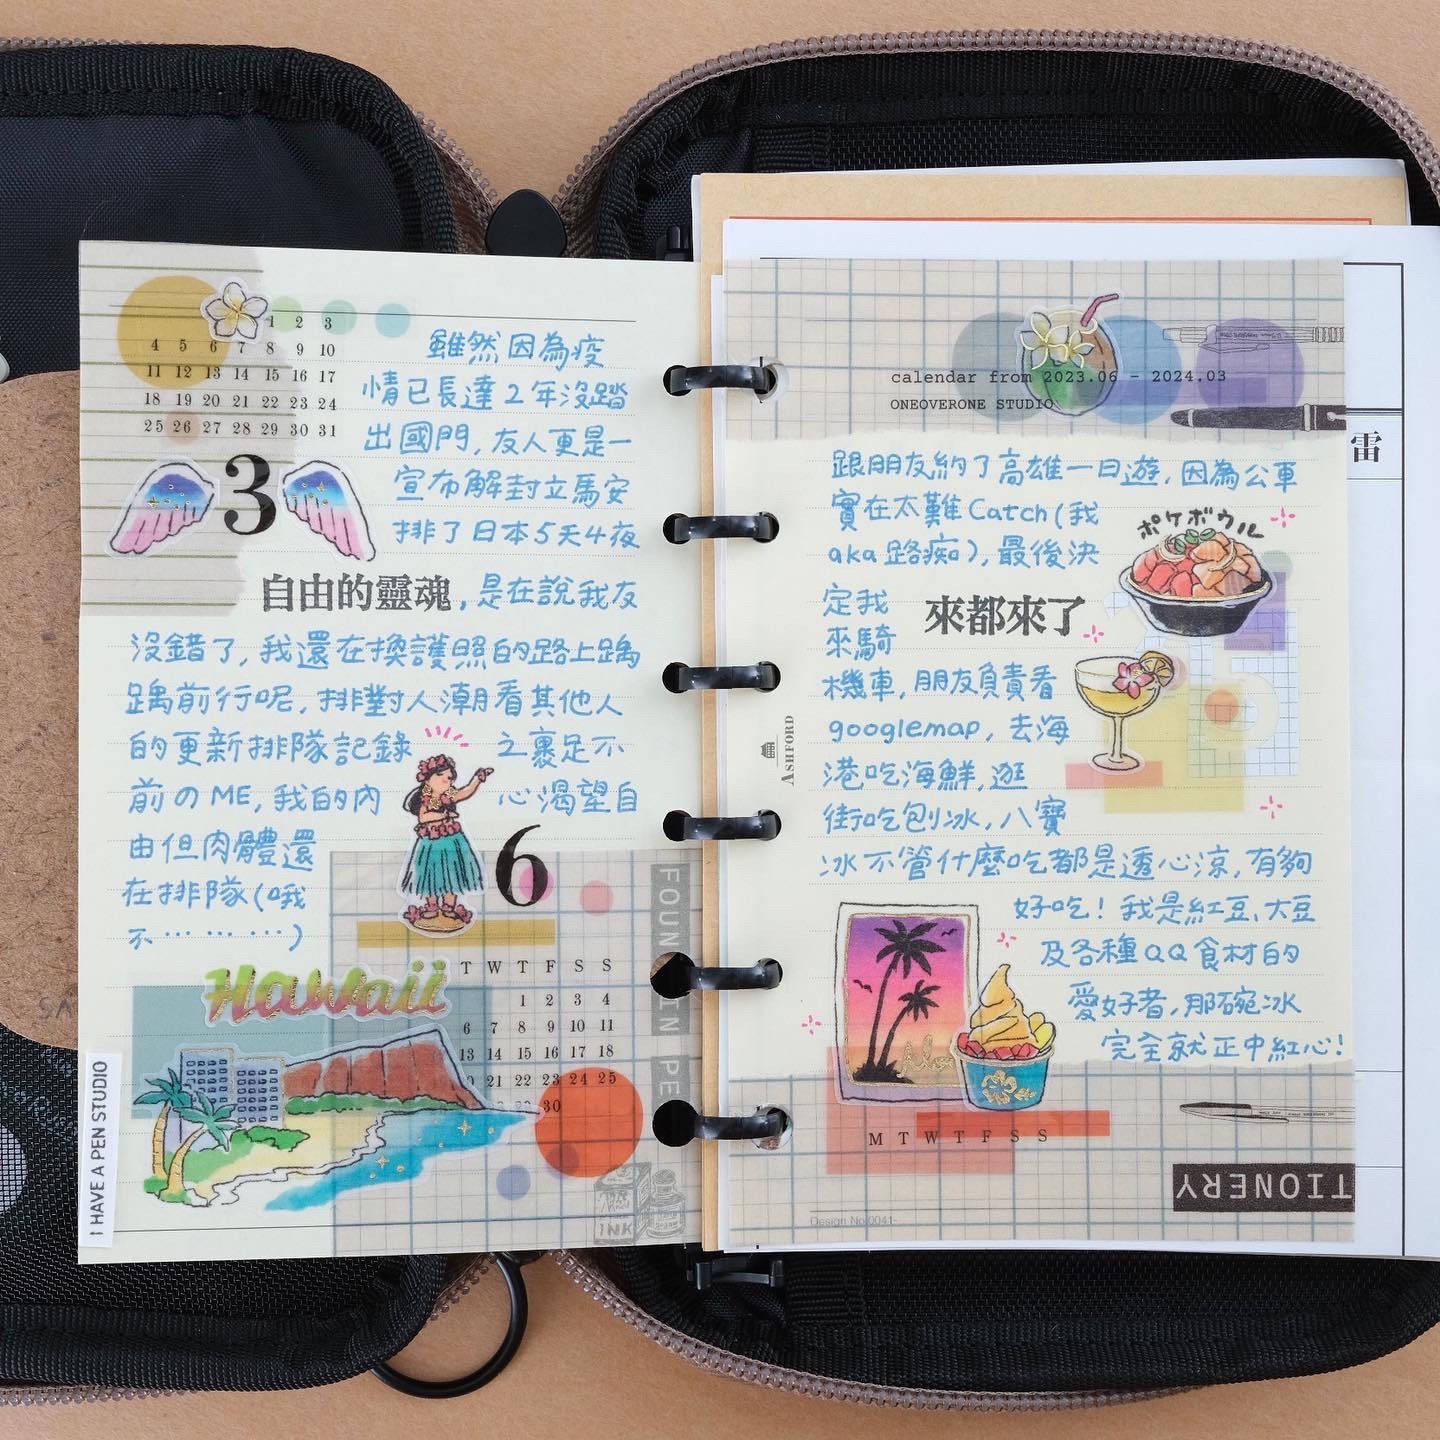 1 2 3
4 5 6 7 8 9 10
11 12 13 14 15 16 17
18 19 20 21 22 23 24
25 26 27 28 29 30 31
3
雖然因為疫
情已長達2年沒踏
出國門,友人更是一
宣布解封立馬安
排了日本5天4夜
自由的靈魂,是在說我友
沒錯了,我還在換護照的路上踽
踽前行呢,排對人潮看其他人
的更新排隊記錄 之裹足不
前のME,我的內 心渴望自
由但肉體還
在排隊(哦
不………)
6
FOUN IN PE
Hawaii
T W T F S S
1 2 3 4
6 7 8 9 10 11
13 14 15 16 17 18
21 22 23 24 25
30
I HAVE A PEN STUDIO
INK
calendar from 2023.06 - 2024.03
ONEOVERONE STUDIO
雷
跟朋友約了高雄一日遊,因為公車
實在太難Catch(我
aka路痴),最後決
定我
來都來了
來騎
機車,朋友負責看
googlemap,去海
港吃海鮮,逛
街吃刨冰,八寶
冰不管什麼吃都是透心涼,有夠
好吃!我是紅豆、大豆
及各種QQ食材的
愛好者,那碗冰
完全就正中紅心!
ポケボウル
ASHFORD
Alo
M T W T F S S
TIONERY
Design No.0041-